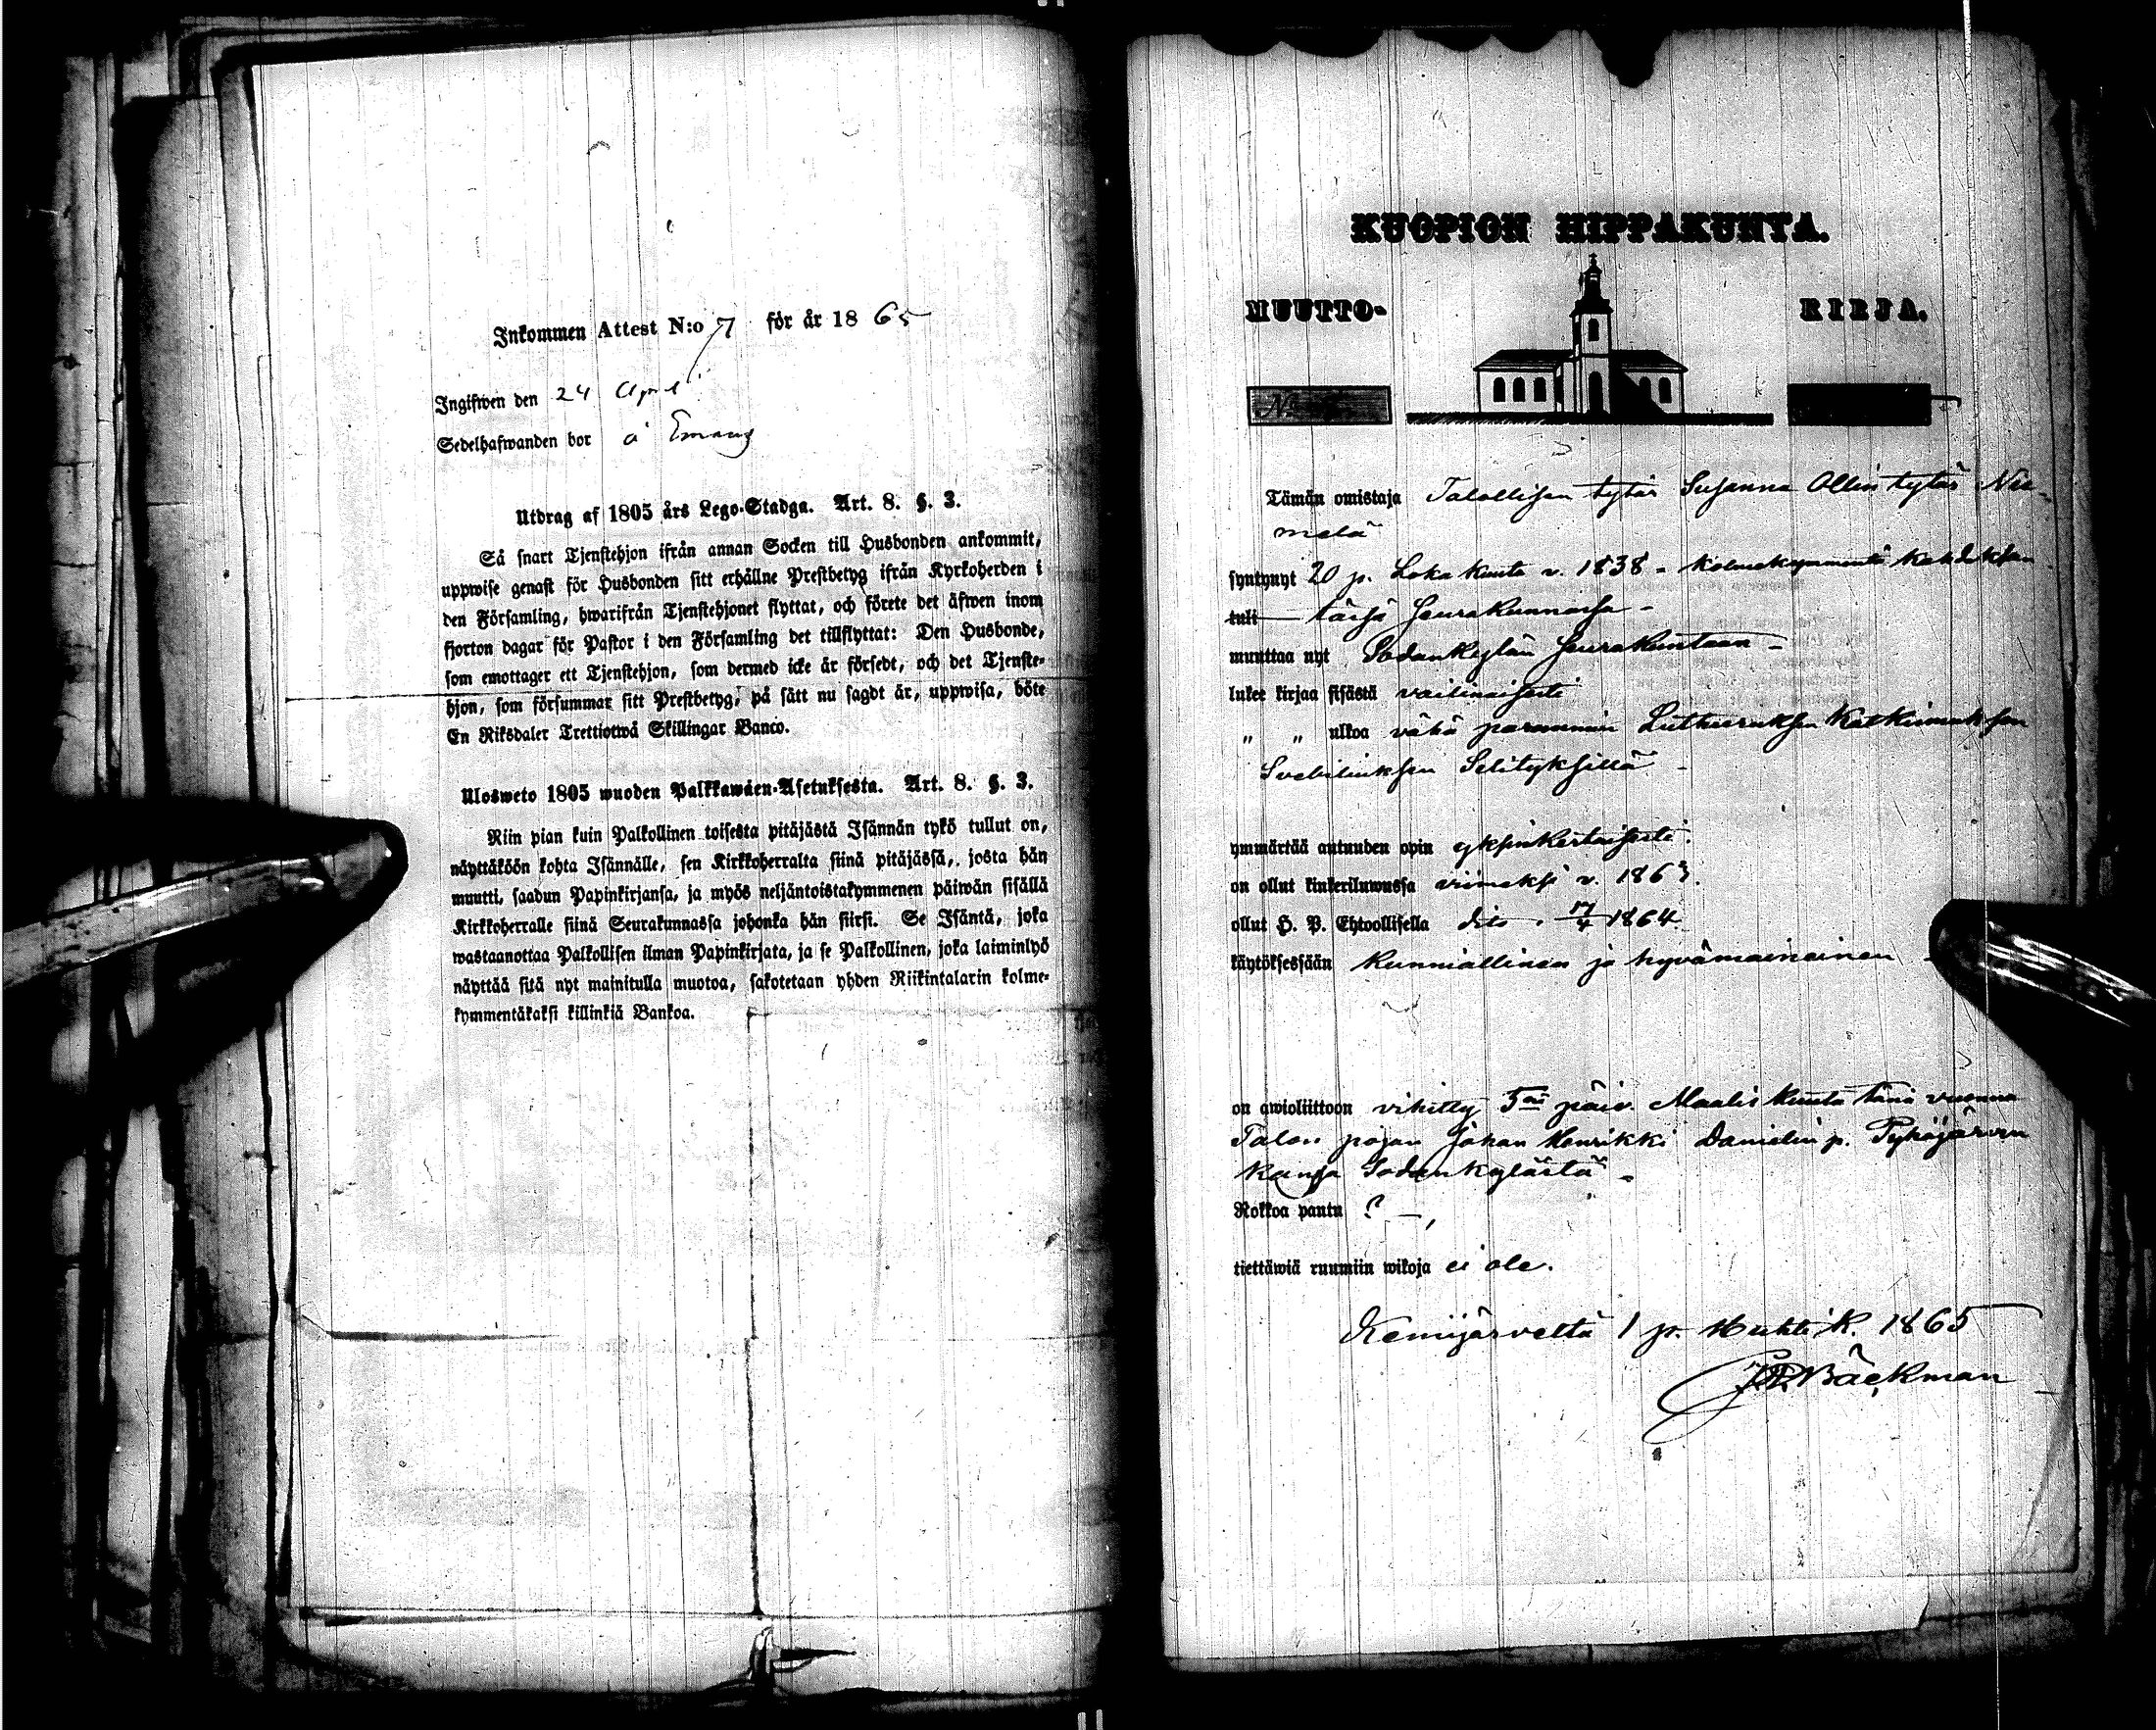 Inkommen Attest N:o 7 för år 1865
Ingifwen den 24 April
Sedelhafwanden bor å
Utdrag af 1805 års Lego-Stadga. Art. 8. §. 3.
Så snart Tjenstehjon ifrån annan Socken till Husbonden ankommit,
uppwise genast för Husbonden sitt erhållne Prestbetyg ifrån Kyrkoherden i
den Församling, hwarifrån Tjenstehjonet flyttat, och förete det äfwen inom
fjorton dagar för Pastor i den Församling det tillflyttat: Den Husbonde,
som emottager ett Tjenstehjon, som dermed icke är försedt, och det Tjenste-
hjon, som försummar sitt Prestbetyg, på sätt nu sagdt är, uppwisa, böte
En Riksdaler Trettiotwå Skillingar Banco.
Ulosweto 1805 wuoden Palkkawäen-Asetuksesta. Art. 8. §. 3.
Niin pian kuin Palkollinen toisesta pitäjästä Isännän tykö tullut on,
näyttäköön kohta Isännälle, sen Kirkkoherralta siinä pitäjässä, josta hän
muutti, saadun Papinkirjansa, ja myös neljäntoistakymmenen päiwän sisällä
Kirkkoherralle siinä Seurakunnassa johonka hän siirsi. Se Isäntä, joka
wastaanottaa Palkollisen ilman Papinkirjata, ja se Palkollinen, joka laiminlyö
näyttää sitä nyt mainitulla muotoa, sakotetaan yhden Riikintalarin kolme-
kymmentäkaksi killinkiä Bankoa.
KUOPION HIPPAKUNTA.
MUUTTO- KIRJA.
N:o
Tämän omistaja Talollisen tytär Susanna Ollin tytär Nie-
melä
syntynyt 20 p. Loka kuuta v. 1838 - kolmekymmentä kahdeksan
tuli tässä seurakunnassa -
muuttaa nyt Sodankylän seurakuntaan -
lukee kirjaa sisästä vaillinaisesti
" " ulkoa vähä parammin Lutheruksen Katkismuksen
Svebiliuksen Selityksillä -
ymmärtää autuuden opin yksinkertaisesti.
on ollut kinkeriluwussa viimeksi v. 1863.
ollut H. P. Ehtoollisella dito 17/4 1864.
käytöksessään Kunniallinen ja hyvämaineinen -
on awioliittoon vihitty 5nä päiv. Maalis kuuta tänä vuonna
Talon pojan Johan Henrikki Danielin p. Pyhäjärven
kanssa Sodankylästä -
Rokkoa pantu ? -
tiettäwiä ruumiin wikoja ei ole.
Kemijärveltä 1 p. Huhti K. 1865
Bäckman